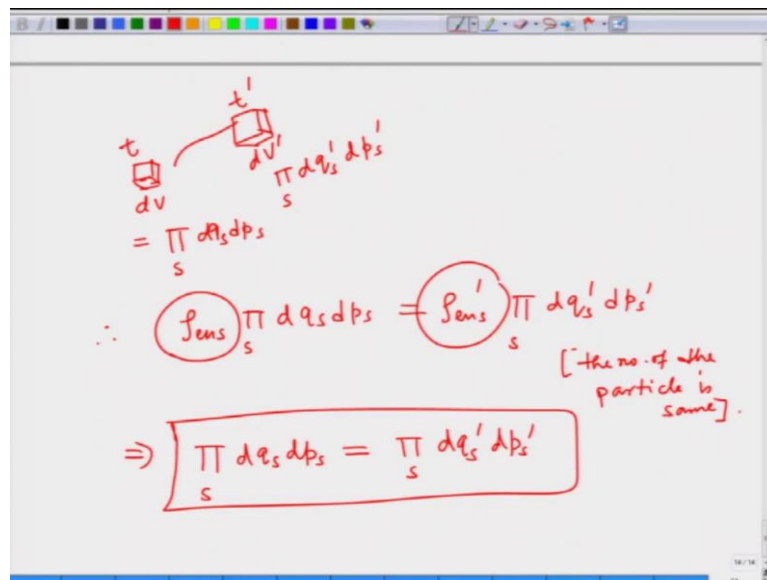 B I
t'
t
dV'
π dq_s' dp_s'
s
dV
= π dq_s dp_s
s
∴ ρ_ens π dq_s dp_s = ρ_ens' π dq_s' dp_s'
s s
[the no. of the
particle is
same].
⇒ π dq_s dp_s = π dq_s' dp_s'
s s
14 / 14